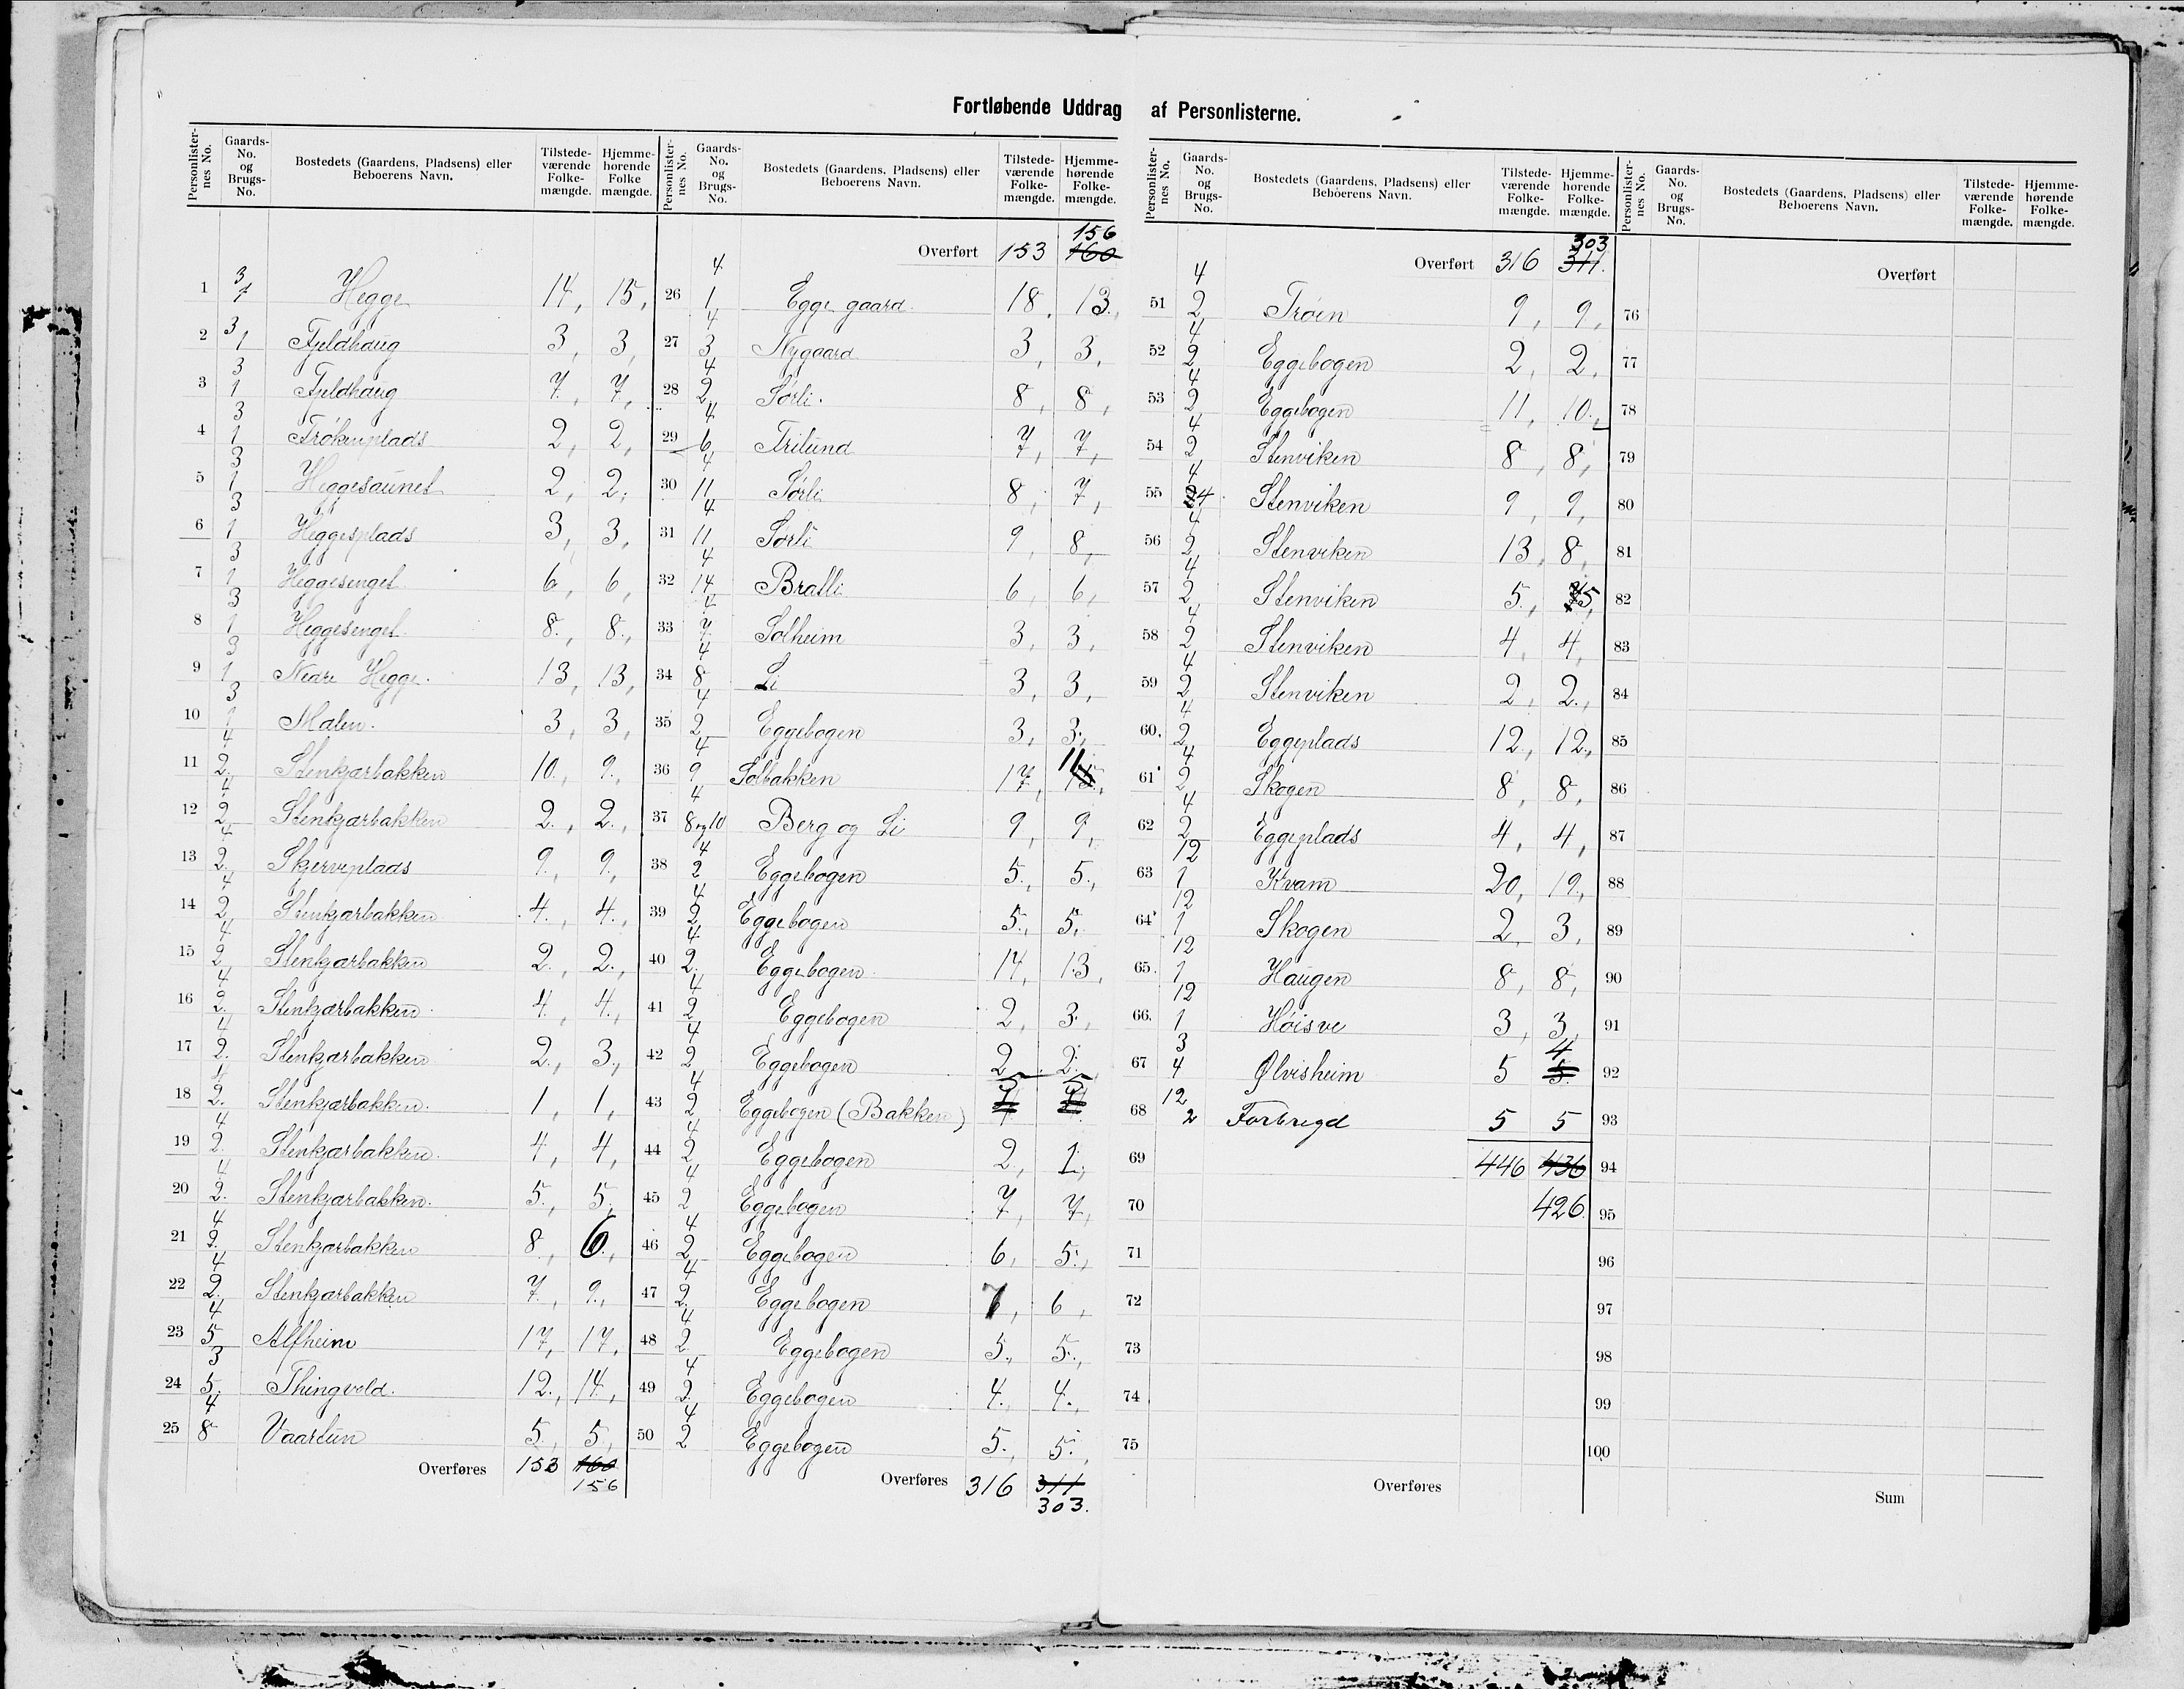 Fortløbende Uddrag af Personlisterne.
Personlisternes No. Gaards-No. og Brugs-No. Bostedets (Gaardens, Pladsens) eller Beboerens Navn. Tilstedeværende Folkemængde. Hjemmehørende Folkemængde.
1 3 1 Hegge 14, 15,
2 3 1 Fjeldhaug 3, 3,
3 3 1 Fjeldhaug 7, 7,
4 3 1 Trøkenplads 2, 2,
5 3 1 Heggesaunet 2, 2,
6 3 1 Heggesplads 3, 3,
7 3 1 Heggesenget 6, 6,
8 3 1 Heggesenget 8, 8,
9 3 1 Nedre Hegge. 13, 13,
10 3 1 Malen. 3, 3,
11 4 2 Stenkjærbakken 10, 9,
12 4 2 Stenkjærbakken 2, 2,
13 4 2 Skjerveplads 9, 9,
14 4 2 Stenkjærbakken 4, 4,
15 4 2 Stenkjærbakken 2, 2,
16 4 2 Stenkjærbakken 4, 4,
17 4 2 Stenkjærbakken 2, 3,
18 4 2 Stenkjærbakken. 1, 1,
19 4 2 Stenkjærbakken. 4, 4,
20 4 2 Stenkjærbakken. 5, 5,
21 4 2 Stenkjærbakken 8, 6,
22 4 2 Stenkjærbakken 7, 9,
23 4 5 Alfheim 17, 17,
24 3 5 Thingvold. 12, 14,
25 4 8 Vaartun 5, 5,
Overføres 153 160
156
Personlisternes No. Gaards-No. og Brugs-No. Bostedets (Gaardens, Pladsens) eller Beboerens Navn. Tilstedeværende Folkemængde. Hjemmehørende Folkemængde.
156
Overført 153 160
26 4 1 Egge gaard 18, 13,
27 4 3 Nygaard 3, 3,
28 4 2 Sørli. 8, 8,
29 4 6 Trilund 7, 7,
30 4 11 Sørli 8, 7,
31 4 11 Sørli 9, 8,
32 4 14 Bratli 6, 6,
33 4 7 Solheim 3, 3,
34 4 8 Li 3, 3,
35 4 2 Eggebogen 3, 3,
36 4 9 Solbakken 17, 11
37 4 8 og 10 Berg og Li 9, 9,
38 4 2 Eggebogen 5, 5,
39 4 2 Eggebogen 5, 5,
40 4 2 Eggebogen 14, 13,
41 4 2 Eggebogen 2, 3,
42 4 2 Eggebogen 2, 2,
43 4 2 Eggebogen (Bakken) 5 5
44 4 2 Eggebogen 2, 1,
45 4 2 Eggebogen 7, 7,
46 4 2 Eggebogen 6, 5,
47 4 2 Eggebogen 7, 6,
48 4 2 Eggebogen 5, 5,
49 4 2 Eggebogen 4, 4,
50 4 2 Eggebogen 5, 5,
Overføres 316 311
303.
Personlisternes No. Gaards-No. og Brugs-No. Bostedets (Gaardens, Pladsens) eller Beboerens Navn. Tilstedeværende Folkemængde. Hjemmehørende Folkemængde.
303
Overført 316 311.
51 4 2 Trøin 9, 9,
52 4 2 Eggebogen 2, 2,
53 4 2 Eggebogen 11, 10,
54 4 2 Stenviken 8, 8,
55 4 24 Stenviken 9, 9,
56 4 2 Stenviken 13, 8,
57 4 2 Stenviken 5, 5,
58 4 2 Stenviken 4, 4,
59 4 2 Stenviken 2, 2,
60 4 2 Eggeplads 12, 12,
61 4 2 Skogen 8, 8,
62 4 2 Eggeplads 4, 4,
63 12 1 Kvam 20, 19,
64 12 1 Skogen 2, 3,
65 12 1 Haugen 8, 8,
66 12 1 Høisve 3, 3,
67 3 4 Ølvisheim 5 4 5
68 12 2 Forbregd 5 5
69 446 436
70 426
71
72
73
74
75
Overføres
Personlisternes No. Gaards-No. og Brugs-No. Bostedets (Gaardens, Pladsens) eller Beboerens Navn. Tilstedeværende Folkemængde. Hjemmehørende Folkemængde.
Overført
76
77
78
79
80
81
82
83
84
85
86
87
88
89
90
91
92
93
94
95
96
97
98
99
100
Sum